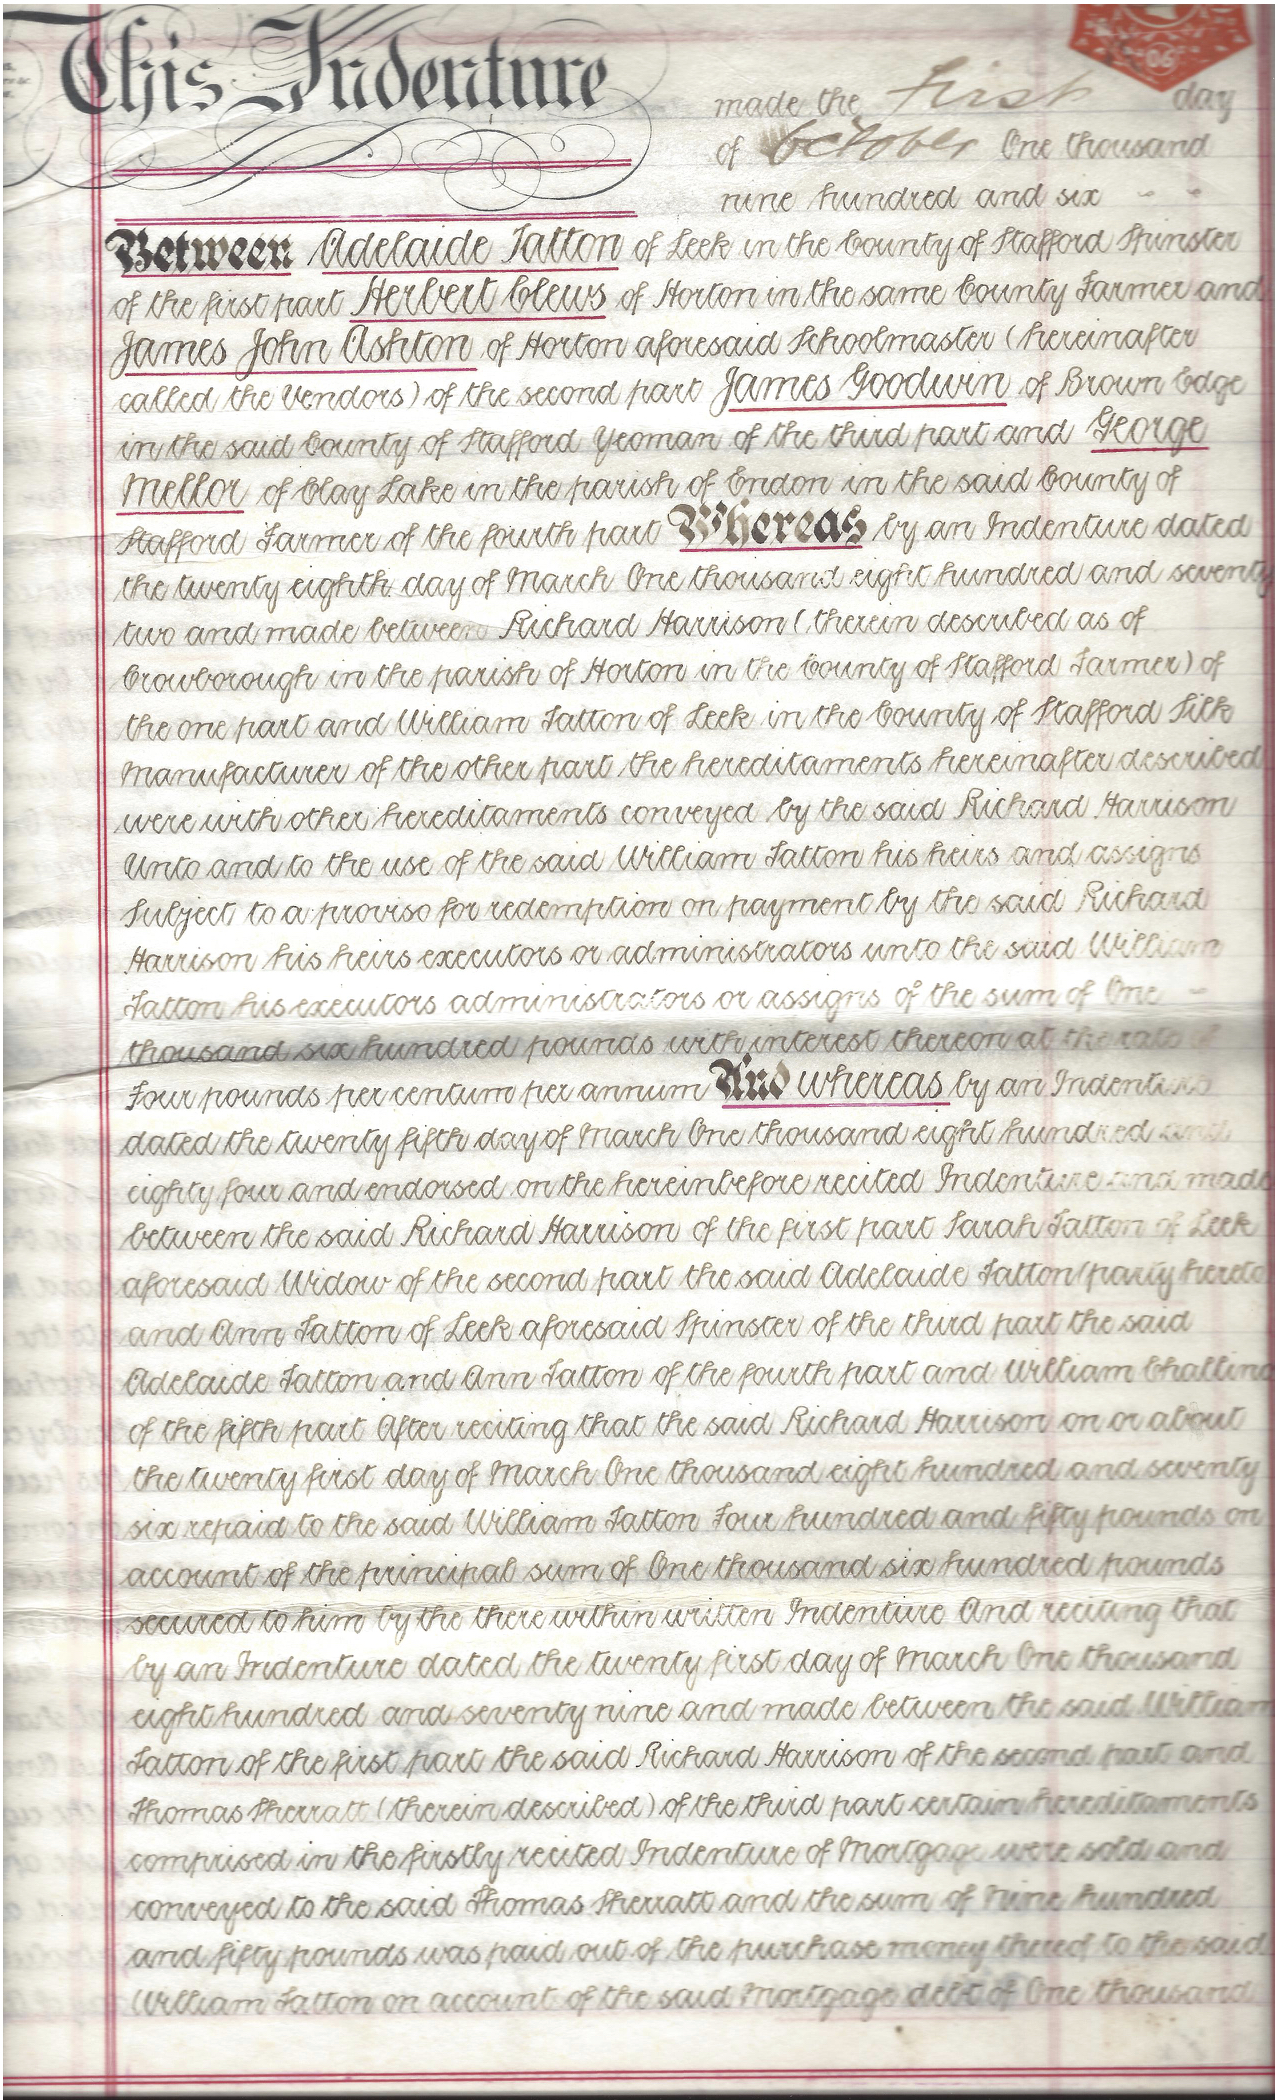 This Indenture made the first day
of October One thousand
nine hundred and six
Between Adelaide Tatton of Leek in the County of Stafford Spinster
of the first part Herbert Clews of Horton in the same County Farmer and
James John Ashton of Horton aforesaid Schoolmaster (hereinafter
called the Vendors) of the second part James Goodwin of Brown Edge
in the said County of Stafford Yeoman of the third part and George
Mellor of Clay Lake in the parish of Endon in the said County of
Stafford Farmer of the fourth part Whereas by an Indenture dated
the twenty eighth day of March One thousand eight hundred and seventy
two and made between Richard Harrison (therein described as of
Crowborough in the parish of Horton in the County of Stafford Farmer) of
the one part and William Tatton of Leek in the County of Stafford Silk
Manufacturer of the other part the hereditaments hereinafter described
were with other hereditaments conveyed by the said Richard Harrison
Unto and to the use of the said William Tatton his heirs and assigns
Subject to a proviso for redemption on payment by the said Richard
Harrison his heirs executors or administrators unto the said William
Tatton his executors administrators or assigns of the sum of One
thousand six hundred pounds with interest thereon at the rate of
Four pounds per centum per annum And whereas by an Indenture
dated the twenty fifth day of March One thousand eight hundred and
eighty four and endorsed on the hereinbefore recited Indenture and made
between the said Richard Harrison of the first part Sarah Tatton of Leek
aforesaid Widow of the second part the said Adelaide Tatton (party hereto
and Ann Tatton of Leek aforesaid Spinster of the third part the said
Adelaide Tatton and Ann Tatton of the fourth part and William Challino
of the fifth part After reciting that the said Richard Harrison on or about
the twenty first day of March One thousand eight hundred and seventy
six repaid to the said William Tatton Four hundred and fifty pounds on
account of the principal sum of One thousand six hundred pounds
secured to him by the there within written Indenture And reciting that
by an Indenture dated the twenty first day of March One thousand
eight hundred and seventy nine and made between the said William
Tatton of the first part the said Richard Harrison of the second part and
Thomas Sherratt (therein described) of the third part certain hereditaments
comprised in the firstly recited Indenture of Mortgage were sold and
conveyed to the said Thomas Sherratt and the sum of Nine hundred
and fifty pounds was paid out of the purchase money thereof to the said
William Tatton on account of the said Mortgage debt of One thousand
06